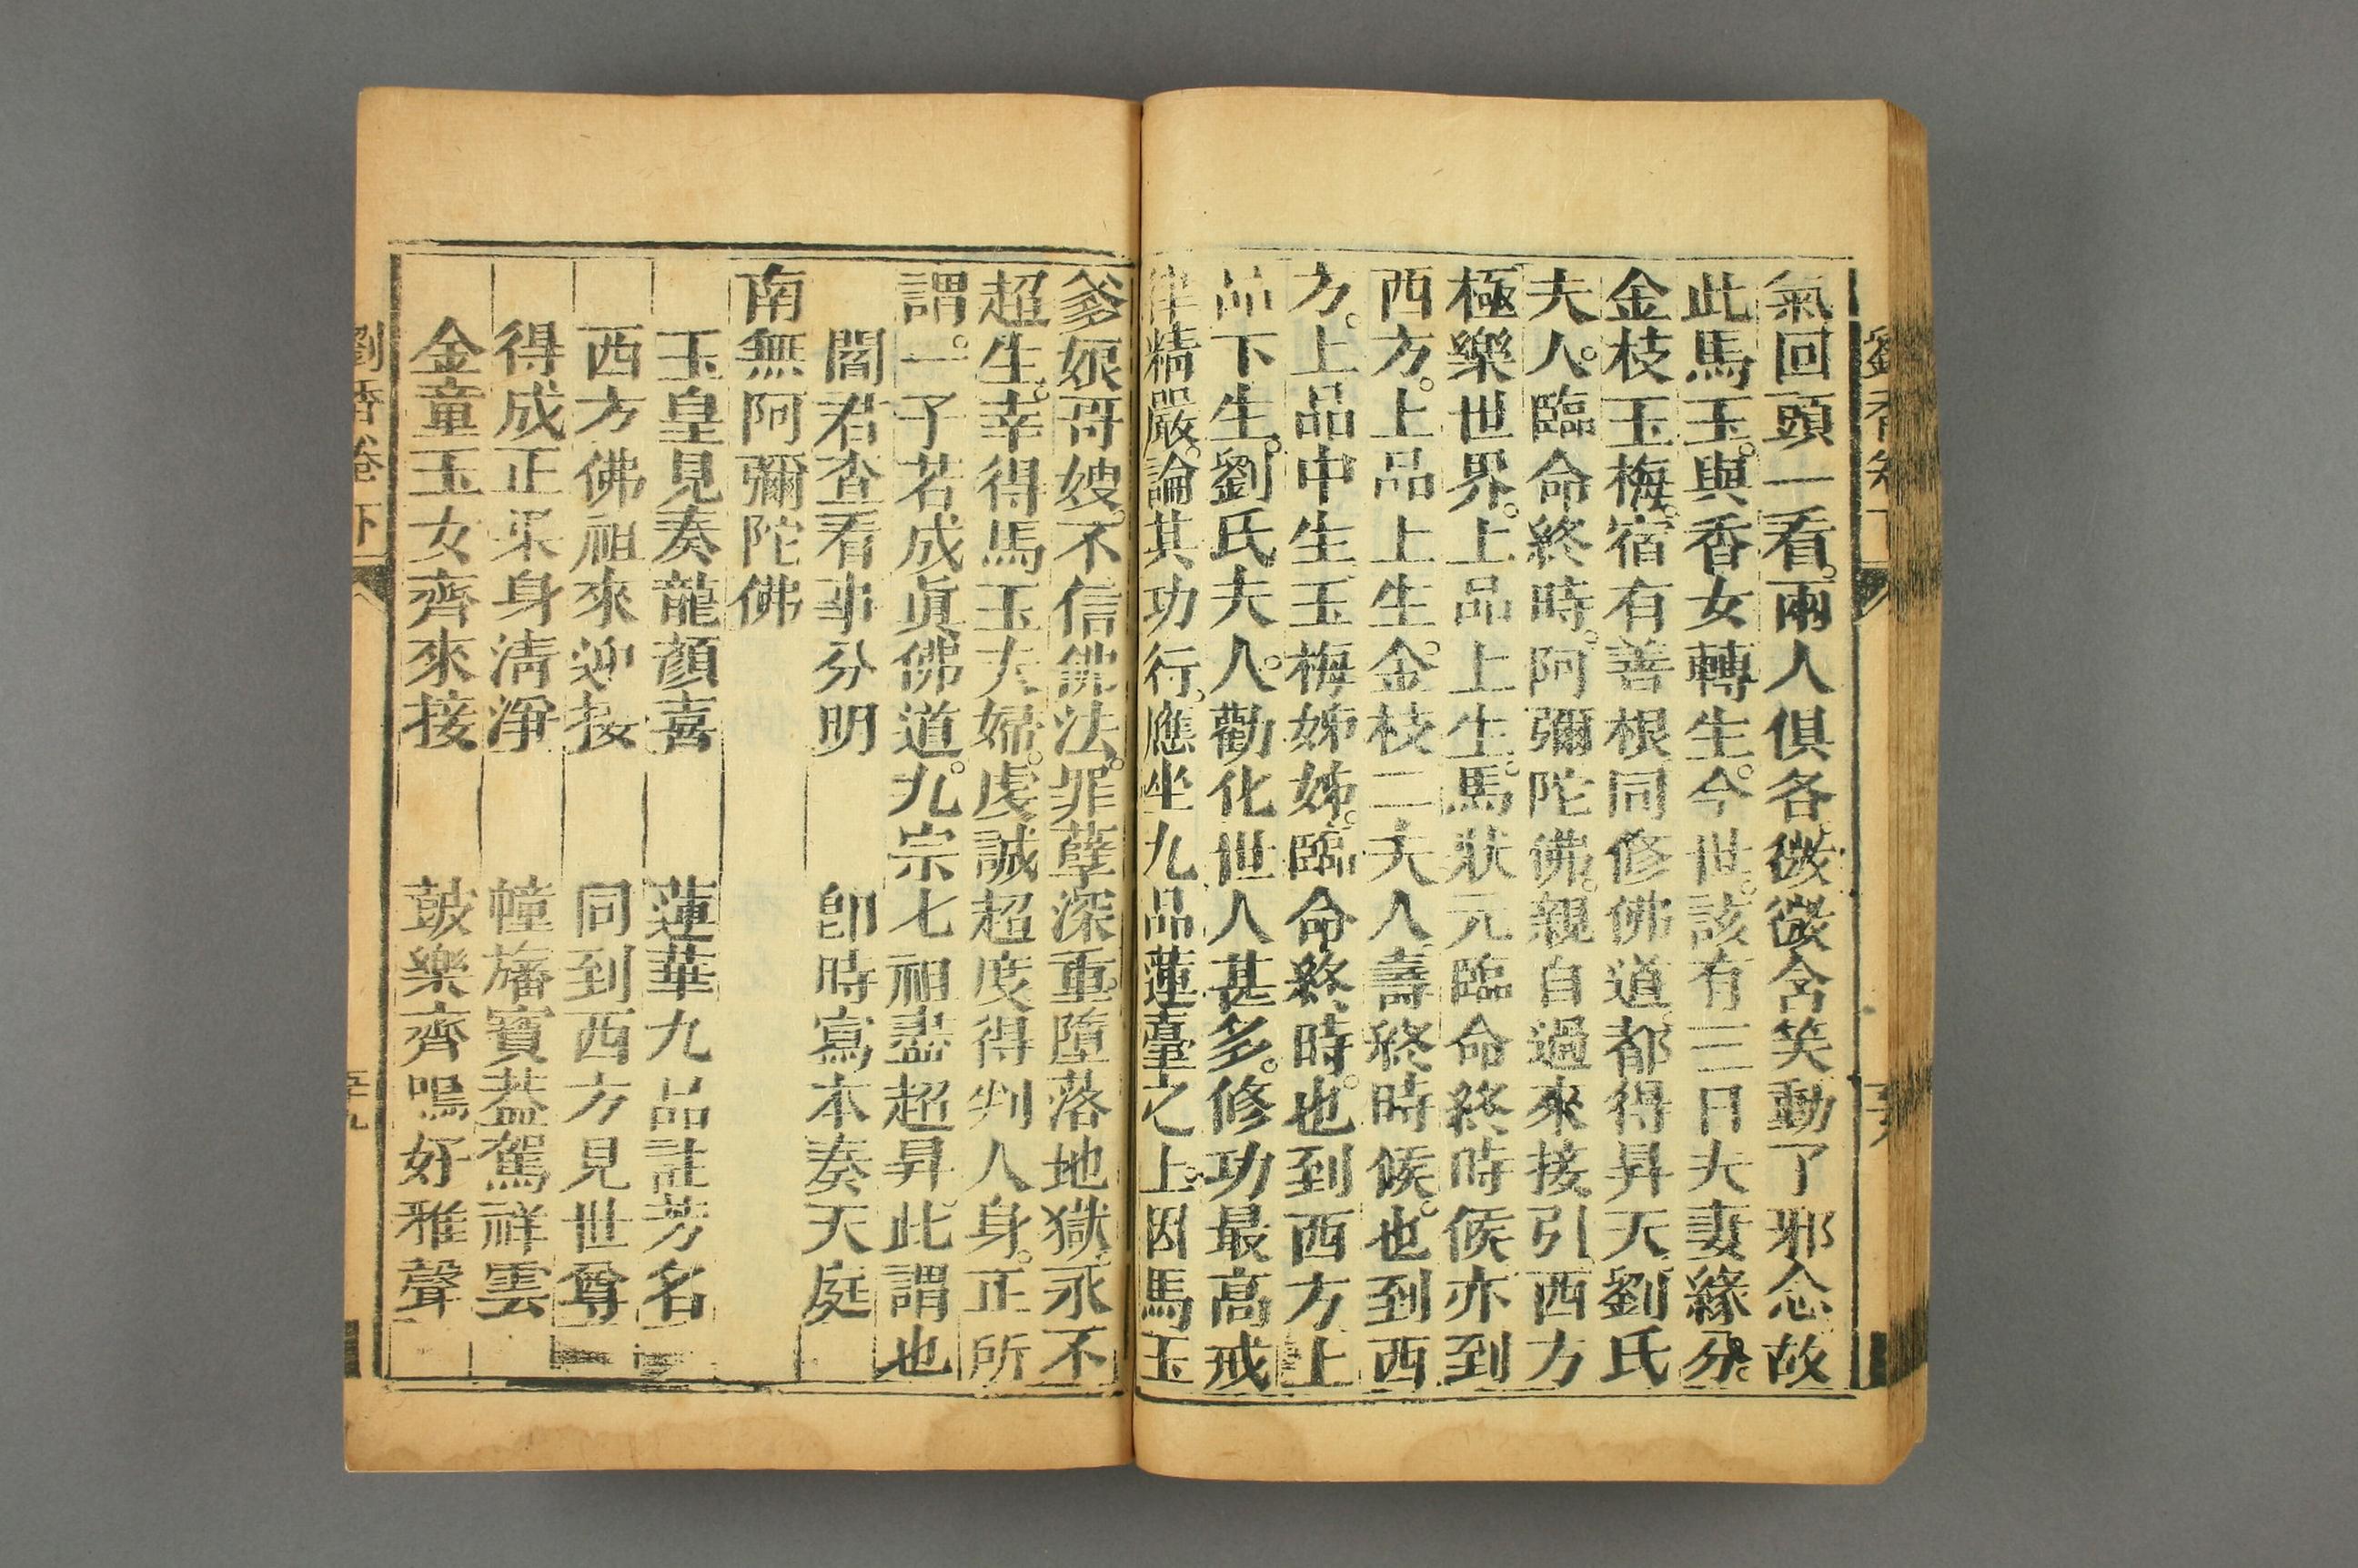 氣回頭一看。兩人俱各微微含笑動了邪念故
此馬玉。與香女轉生。今世。該有三日夫妻緣分。
金枝玉梅。宿有善根同修佛道。都得昇天。劉氏
夫人。臨命終時。阿彌陀佛。親自過來接引西方
極樂世界。上品上生。馬狀元臨命終時候亦到
西方。上品上生。金枝二夫人壽終時候。也到西
方。上品中生玉梅姊姊。臨命終時。也到西方上
品下生。劉氏夫人。勸化世人甚多。修功最高戒
律精嚴。論其功行。應坐九品蓮臺之上。因馬玉
爹娘哥嫂。不信佛法。罪孽深重。墮落地獄。永不
超生。幸得馬玉夫婦。虔誠超度得判人身。正所
謂。一子若成眞佛道。九宗七祖盡超昇。此謂也
閻君查看事分明 卽時寫本奏天庭
南無阿彌陀佛
玉皇見奏龍顔喜 蓮華九品註芳名
西方佛祖來迎接 同到西方見世尊
得成正果身淸淨 幢旛寳葢駕祥雲
金童玉女齊來接 鼓樂齊鳴好雅聲
劉香卷下 五九